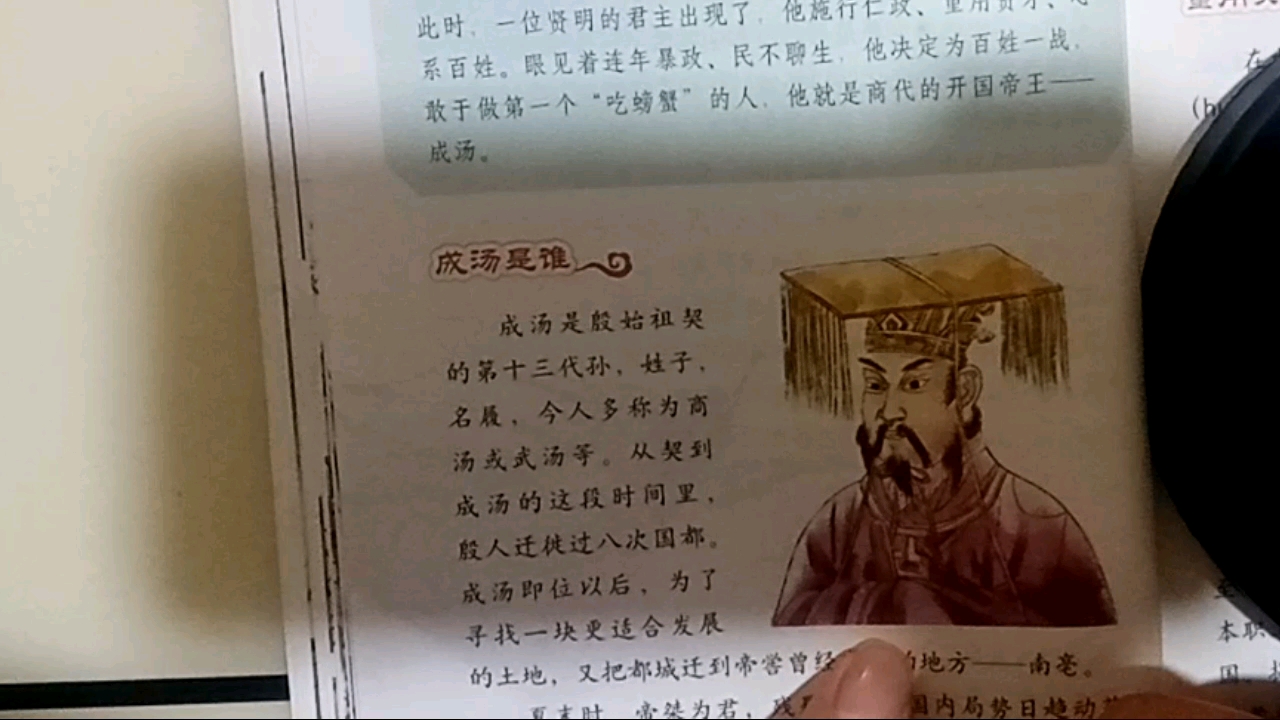 此时，一位贤明的君主出现了，他施行仁政、重用贤才、心
系百姓。眼见着连年暴政、民不聊生，他决定为百姓一战，
敢于做第一个“吃螃蟹”的人，他就是商代的开国帝王——
成汤。
成汤是谁
成汤是殷始祖契
的第十三代孙，姓子，
名履，今人多称为商
汤或武汤等。从契到
成汤的这段时间里，
殷人迁徙过八次国都。
成汤即位以后，为了
寻找一块更适合发展
的土地，又把都城迁到帝喾曾经 的地方——南亳。
夏末时，帝桀为君，残 国内局势日趋动荡
在
本职
国，